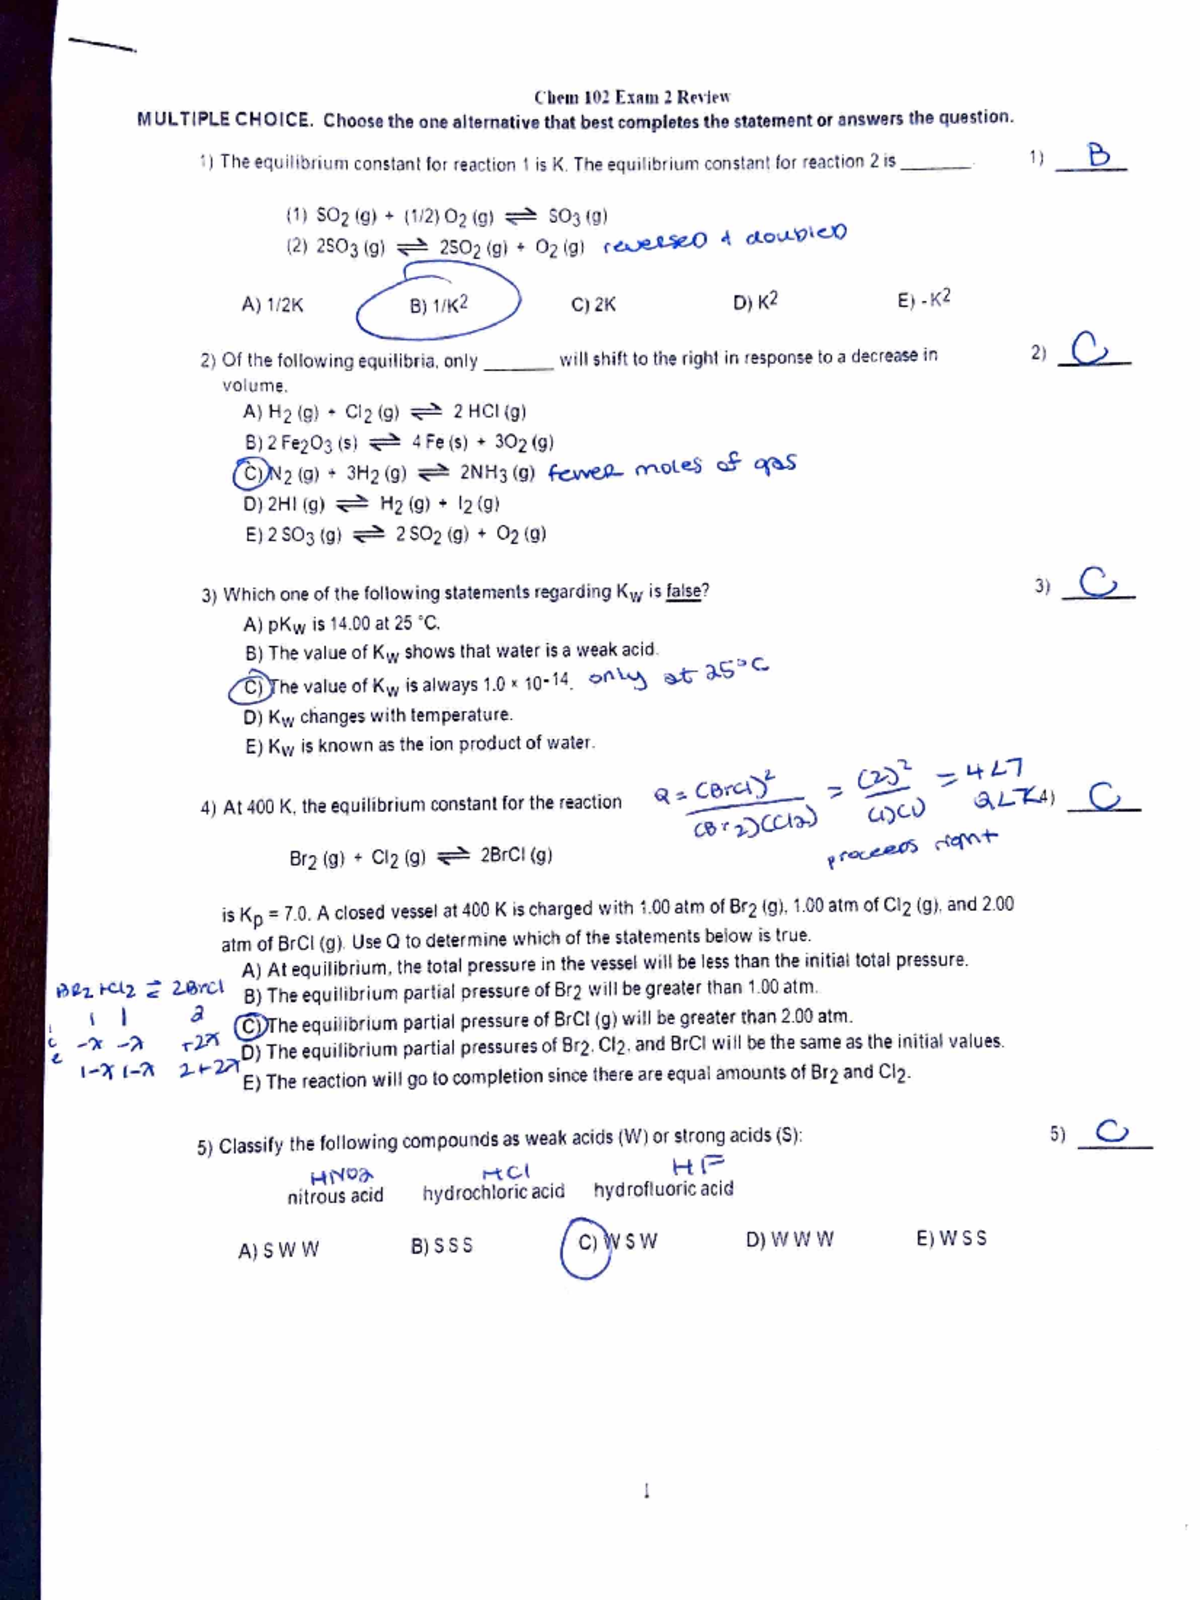 Chem 102 Exam 2 Review
MULTIPLE CHOICE. Choose the one alternative that best completes the statement or answers the question.
1) The equilibrium constant for reaction 1 is K. The equilibrium constant for reaction 2 is ______. 1) B
(1) SO2 (g) + (1/2) O2 (g) ⇌ SO3 (g)
(2) 2SO3 (g) ⇌ 2SO2 (g) + O2 (g) reversed & doubled
A) 1/2K B) 1/K2 C) 2K D) K2 E) -K2
2) Of the following equilibria, only ______ will shift to the right in response to a decrease in 2) C
volume.
A) H2 (g) + Cl2 (g) ⇌ 2 HCl (g)
B) 2 Fe2O3 (s) ⇌ 4 Fe (s) + 3O2 (g)
C) N2 (g) + 3H2 (g) ⇌ 2NH3 (g) fewer moles of gas
D) 2HI (g) ⇌ H2 (g) + I2 (g)
E) 2 SO3 (g) ⇌ 2 SO2 (g) + O2 (g)
3) Which one of the following statements regarding Kw is false? 3) C
A) pKw is 14.00 at 25 °C.
B) The value of Kw shows that water is a weak acid.
C) The value of Kw is always 1.0 × 10-14. only at 25°C
D) Kw changes with temperature.
E) Kw is known as the ion product of water.
4) At 400 K, the equilibrium constant for the reaction Q = (BrCl)2 / (Br2)(Cl2) = (2)2 / (1)(1) = 4<7 Q<K 4) C
proceeds right
Br2 (g) + Cl2 (g) ⇌ 2BrCl (g)
is Kp = 7.0. A closed vessel at 400 K is charged with 1.00 atm of Br2 (g), 1.00 atm of Cl2 (g), and 2.00
atm of BrCl (g). Use Q to determine which of the statements below is true.
A) At equilibrium, the total pressure in the vessel will be less than the initial total pressure.
Br2 + Cl2 ⇌ 2BrCl B) The equilibrium partial pressure of Br2 will be greater than 1.00 atm.
i 1 1 2 C) The equilibrium partial pressure of BrCl (g) will be greater than 2.00 atm.
c -x -x +2x D) The equilibrium partial pressures of Br2, Cl2, and BrCl will be the same as the initial values.
e 1-x 1-x 2+2x E) The reaction will go to completion since there are equal amounts of Br2 and Cl2.
5) Classify the following compounds as weak acids (W) or strong acids (S): 5) C
HNO2 HCl HF
nitrous acid hydrochloric acid hydrofluoric acid
A) S W W B) S S S C) W S W D) W W W E) W S S
1